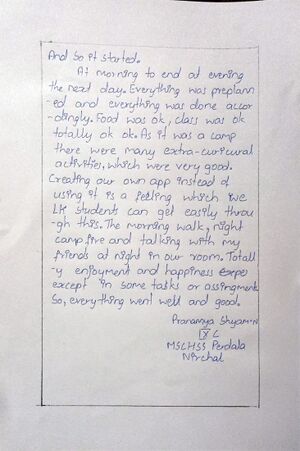 And so it started.
At morning to end at evening
the next day. Everything was preplann
-ed and everything was done accor
-dingly. Food was ok, class was ok
totally ok ok. As it was a camp
there were many extra-curicural
activities, which were very good.
Creating our own app instead of
using it is a feeling which we
LK students can get easily throu
-gh this. The morning walk, night
camp fire and talking with my
friends at night in our room. Totall
-y enjoyment and happiness
except in some tasks or assingments
So, everything went well and good.
Pranamya Shyam.N
X C
MSCHSS Perdala
Nirchal